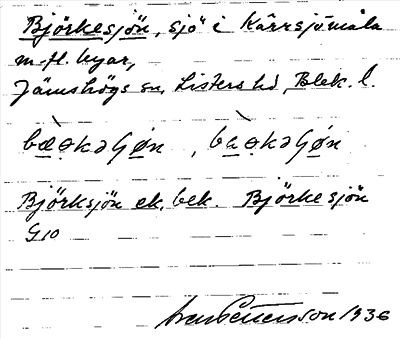 Björkesjön, sjö i Kärrsjömåla
m. fl. byar,
Jämshögs sn, Listers hd, Blek. l.
bæ̀ǫkəɧøn , bàǫkəɧøn
Björksjön ek. bek. Björkesjön
G10
Pettersson 1936